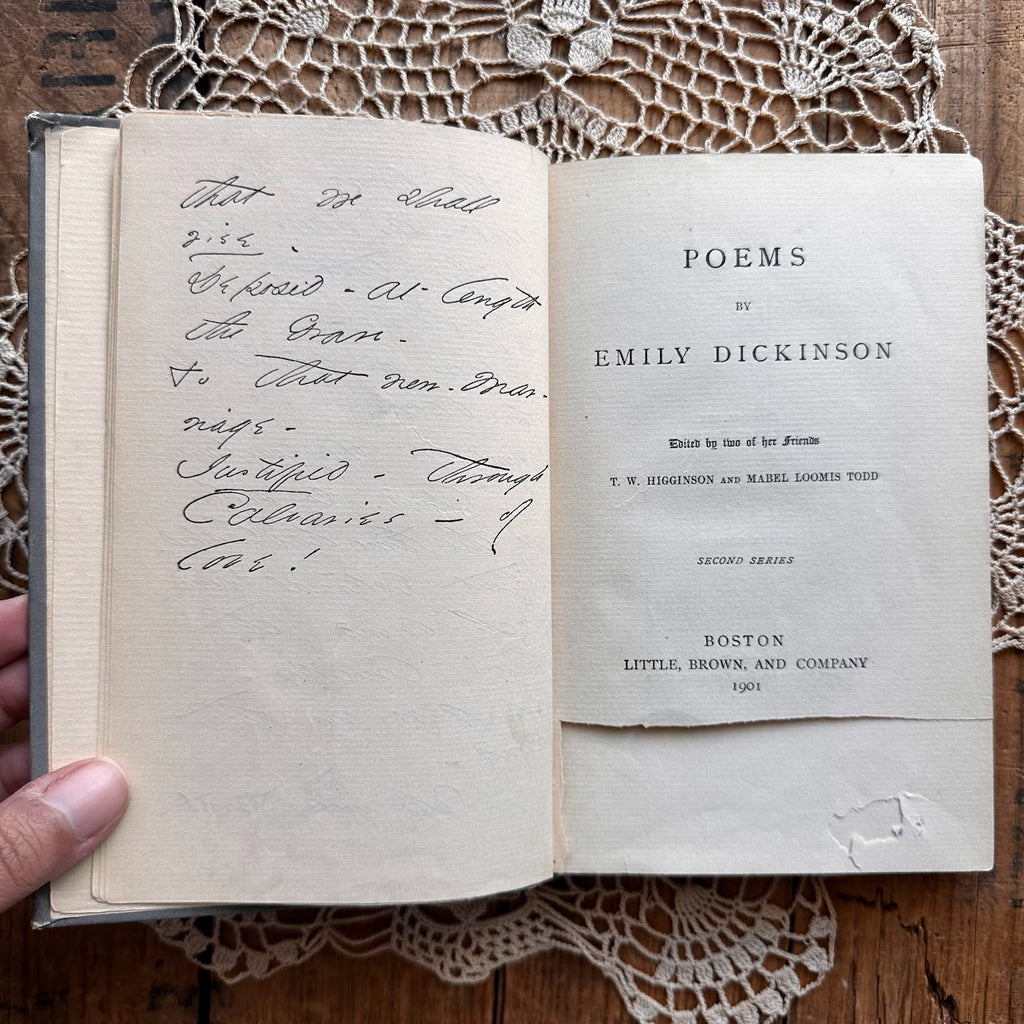 that we shall
rise -
Deposed - at length
the Grave -
To that new - Mar-
riage -
Justified - through
Calvaries - of
Love!
POEMS
BY
EMILY DICKINSON
Edited by two of her Friends
T. W. HIGGINSON AND MABEL LOOMIS TODD
SECOND SERIES
BOSTON
LITTLE, BROWN, AND COMPANY
1901